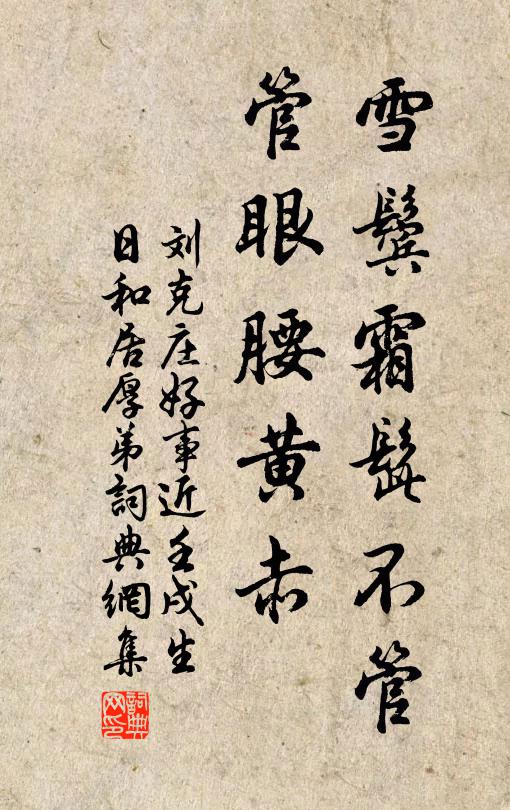 雪鬢霜髭不管
管眼腰黄赤
刘克庄好事近壬戌生
日和居厚弟詞典網集
詞典网印